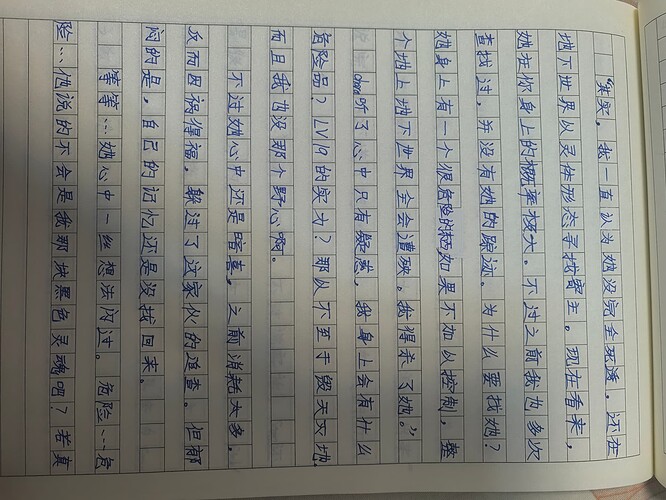 “其实，我一直认为她没完全死透，还在
地下世界以灵体形态寻找寄主。现在看来，
她在你身上的概率极大。不过之前我也多次
查找过，并没有她的踪迹。为什么要找她？
她身上有一个很危险的物品如果不加以控制，整
个地上地下世界全会遭殃。我得杀了她。”
chara听了心中只有疑惑，我身上会有什么
危险品？LV19的实力？那从不至于毁天灭地，
而且我也没那个野心啊。
不过她心中还是暗喜，之前消耗太多，
反而因祸得福，躲过了这家伙的追查。但郁
闷的是，自己的记忆还是没找回来。
等等…她心中一丝想法闪过。危险…危
险…他说的不会是我那块黑色灵魂吧？若真